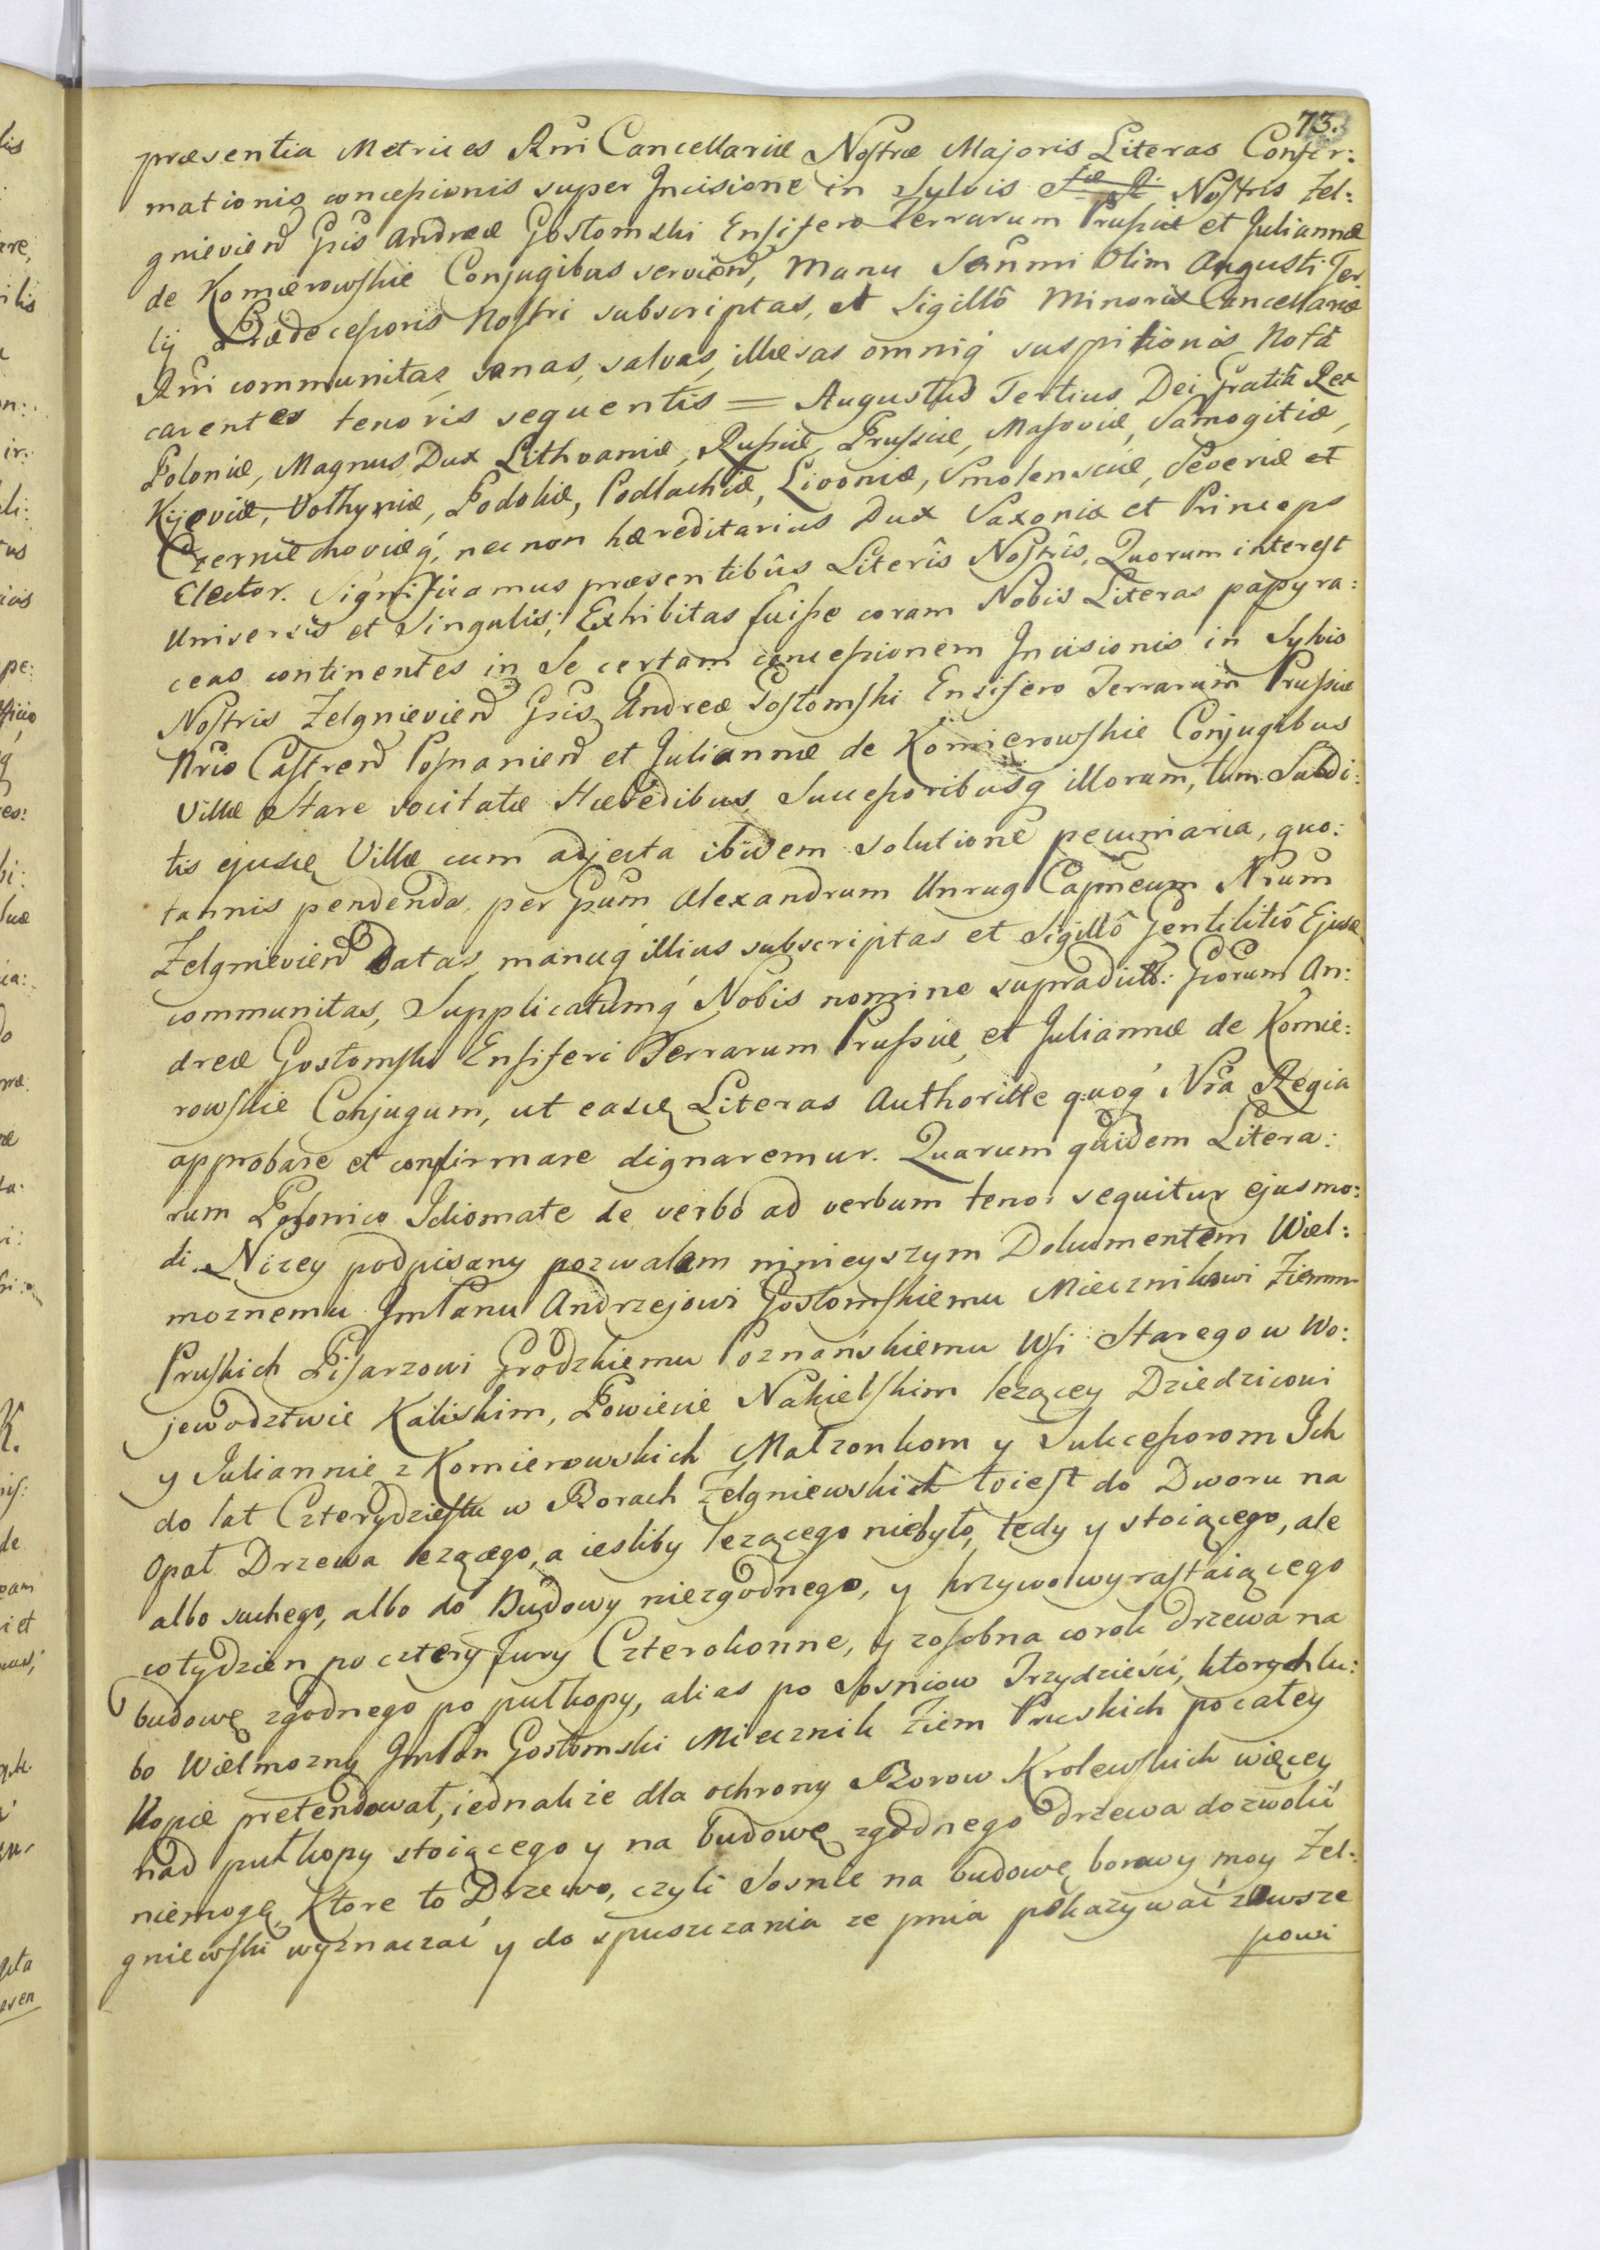 73.
præsentia Metrices Rni Cancellariæ Nostræ Majoris Literas Confir:
mationis concessionis super Incisione in Sylvis Nostris Zel:
gnieviens Gsis Andreæ Gostomski Ensifero Terrarum Prussiæ et Juliannæ
de Komierowskie Conjugibus serviens, Manu Sernmi Olim Augusti Ter
tij Prædecessoris Nostri subscriptas, et Sigillô Minoris Cancellariæ
Rni communitas, sanas, salvas, illæsas omniq suspitionis Nota
carentes tenoris sequentis = Augustus Tertius Dei Gratiâ Rex
Poloniæ, Magnus Dux Lithvaniæ, Russiæ, Prussiæ, Masoviæ, Samogitiæ,
Kijoviæ, Volhyniæ, Podoliæ, Podlachiæ, Livoniæ, Smolensciæ, Severiæ et
Czerniechoviæq, nec non hæreditarius Dux Saxoniæ et Princeps
Elector. Significamus præsentibûs Literîs Nostrîs, Quorum interest
Universis et Singulis; Exhibitas fuisse coram Nobis Literas papyra:
ceas continentes in Se certam concessionem Incisionis in Sylvis
Nostris Zelgnieviens Gsis Andreæ Gostomski Ensifero Terrarum Prussiæ
Nrio Castrens Posnaniens et Juliannæ de Komierowskie Conjugibus
Villæ Stare vocitatæ Hæredibus, Successoribusq illorum, tum Subdi:
tis ejusdę Villæ cum adjecta ibidem solutione pecuniaria, quo:
tannis pendenda, per Gsum Alexandrum Unrug Capneum Nrum
Zelgnieviens Datas, manuq illius subscriptas et Sigillô Gentilitiô Ejusdę
communitas, Supplicatumq Nobis nomine supradictt: Gsorum An:
dreæ Gostomski Ensiferi Terrarum Prussiæ, et Juliannæ de Komie:
rowskie Conjugum, ut easdę Literas Authoritte quoq Nra Regia
approbare et confirmare dignaremur. Quarum quidem Litera:
rum Polonico Idiomate de verbo ad verbum tenor sequitur ejusmo:
di. Nizey podpisany pozwalam ninieyszym Dokumentem Wiel:
moznemu JmPanu Andrzejowi Gostomskiemu Miecznikowi Ziemm
Pruskich Pisarzowi Grodzkiemu Poznańskiemu Wsi Starego w Wo:
jewodztwie Kaliskim, Powiecie Nakielskim lezącey Dziedzicowi
y Juliannie z Komierowskich Małzonkom y Sukcessorom Ich
do lat Czterydziestu w Borach Zelgniewskich toiest do Dworu na
Opał Drzewa lezącego, a iesliby lezącego niebyło, tedy y stoiącego, ale
albo suchego, albo do Budowy niezgodnego, y krzywo wyrastaiącego
co tydzien po cztery fury Czterokonne, y zosobna corok drzewa na
budowę zgodnego po pułkopy, alias po Sosniow Trzydzieści, ktorych lu:
bo Wielmozny JmPan Gostomski Miecznik Ziem Pruskich po całey
Kopie pretendował, iednakże dla ochrony Borow Krolewskich więcey
nad pułkopy stoiącego y na budowę zgodnego drzewa dozwolić
niemogę, Ktore to Drzewo, czyli Sosnie na budowę borowy moy Zel:
gniewski wyznaczać y do spuszczania ze pnia pokazywać zawsze
powi